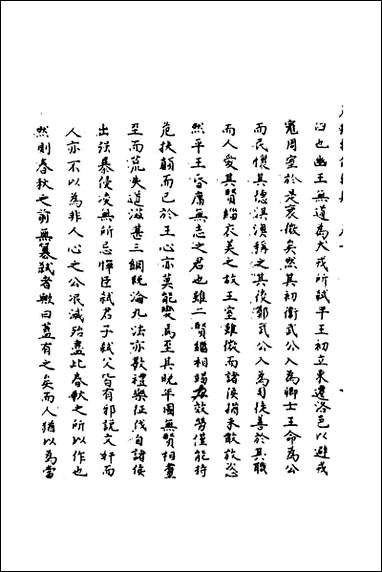 臼也幽王無道為犬戎所弒平王初立東遷洛邑以避戎
寇周室於是衰微矣然其初衛武公入為卿士王命為公
而民懷其德淇澳稱之其後鄭武公入為司徒善於其職
而人愛其賢緇衣美之故王室雖微而諸侯猶未敢放恣
然平王昏庸無志之君也雖二賢繼相竭力效勞僅能持
危扶顛而已於王心亦莫能變焉至其晚年國無賢相晝
至而荒失道滋甚三綱既淪九法亦斁禮樂征伐自諸侯
出強暴侵凌無所忌憚臣弒君子弒父皆有邪說文奸而
人亦不以為非人心之公泯滅殆盡此春秋之所以作也
然則春秋之前無篡弒者歟曰蓋有之矣而人猶以為當